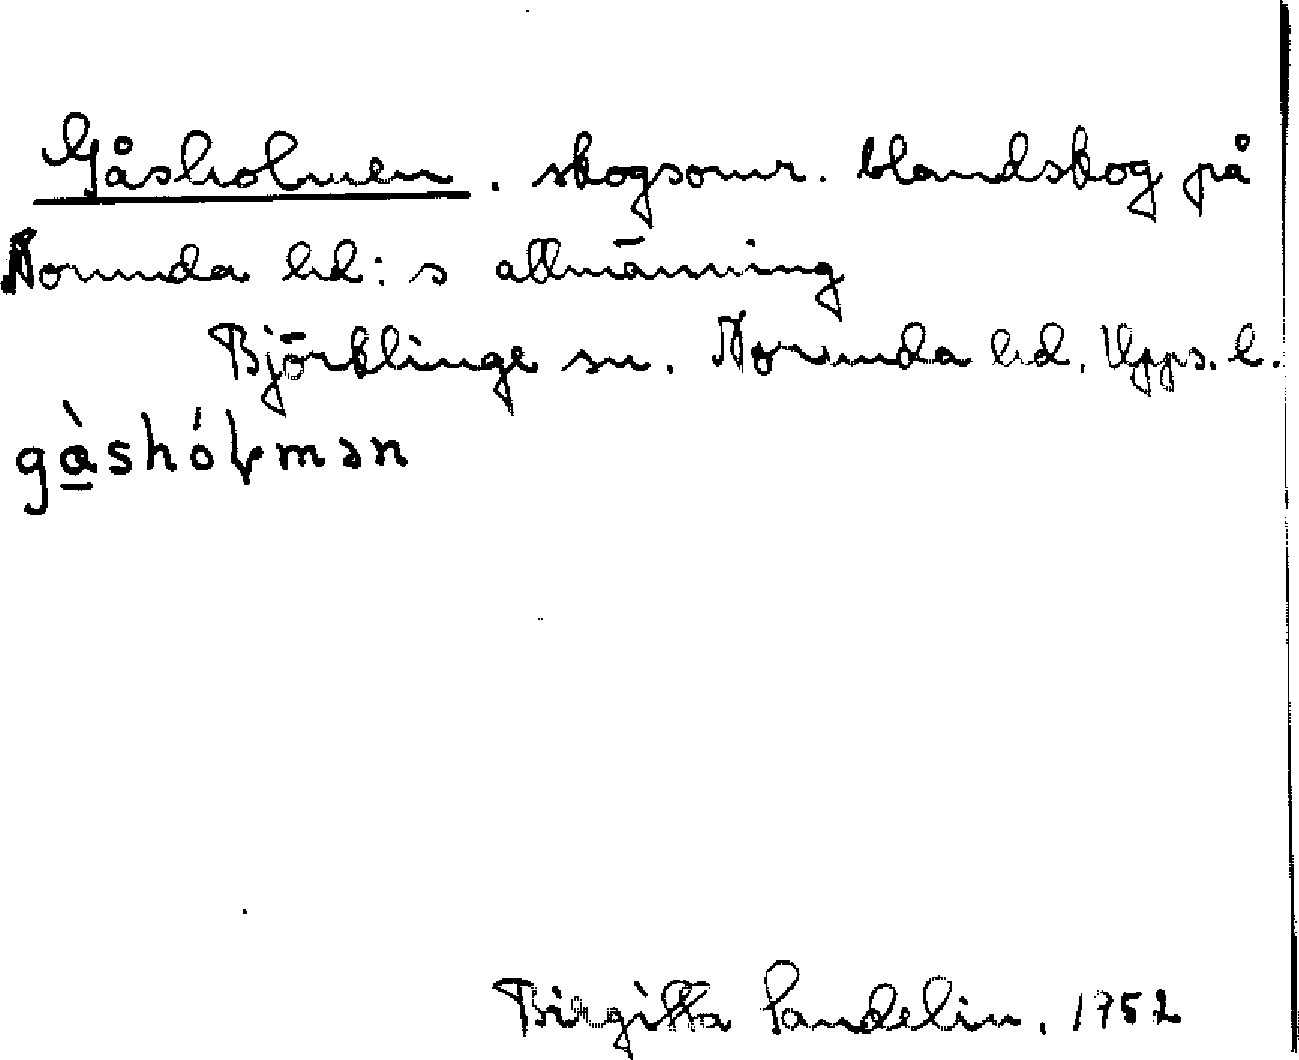 Gåsholmen. skogsomr. blandskog på
Norunda hd:s allmänning
Björklinge sn. Norunda hd. Upps. l.
gà̱shóɫmən
Birgitta Sandelin. 1952